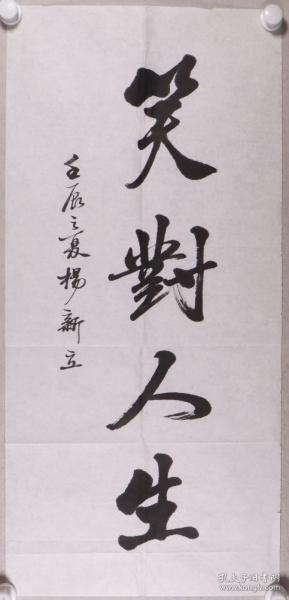 笑對人生
壬辰之夏楊新立
孔夫子旧书网